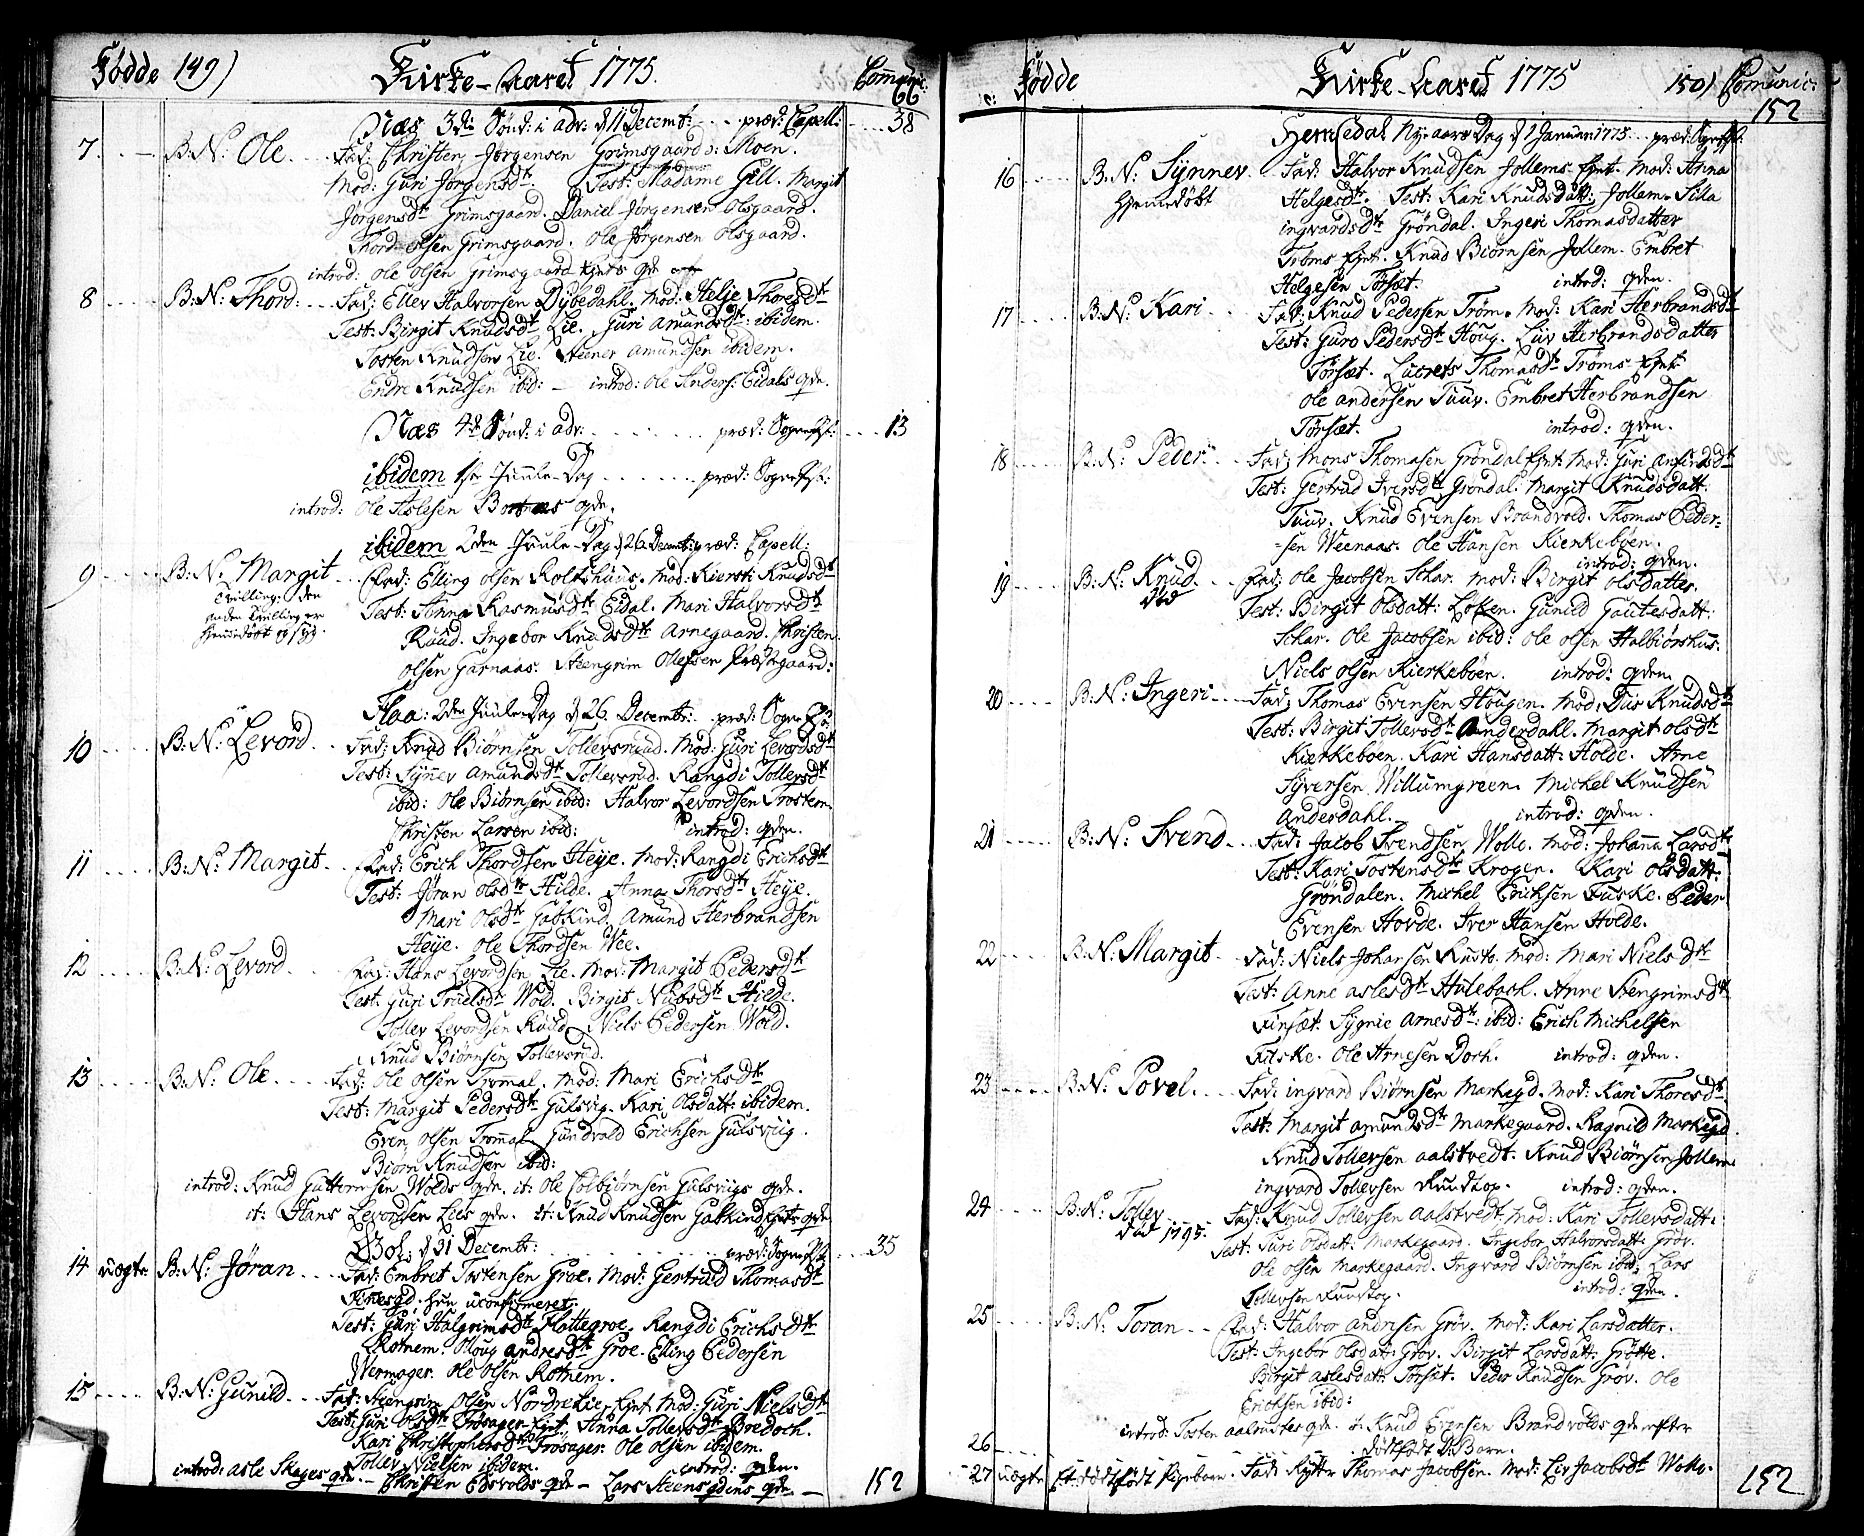 Fødde 149) Kirke-Aaret 1775. Communic:
66
Næs 3de Sønd: i adv: d 11 Decembr: .... præd: Capell: .... 38
7. B:N: Ole. Fad: Christen Jørgensen Grimsgaard ɔ: Moen.
Mod: Guri Jørgensdtr Test: Madame Gell. Margit
Jørgensdtr Grimsgaard. Daniel Jørgensen Olsgaard.
Thord olsen Grimsgaard. Ole Jørgensen Olsgaard.
introd: ole olsen Grimsgaard
8 B:N: Thord: Fad: Ellev Halvorsen Dybedahl. Mod: Helje Thoresdtr
Test: Birgit Knudsdtr Lie. Guri Amundsdtr ibidem.
Tosten Knudsen Lie. Steener Amundsen ibidem.
Endre Knudsen ibid: — introd: ole Anders: Eidals qde.
Næs 4de Sønd: i adv: ...... præd: Sognepr: .... 13
ibidem 1ste Juule-Dag ...... præd: Sognepr:
introd: Ole Aslesen qde.
ibidem 2den Juule-Dag d 26 Decembr: præd: Capell:
9 B:N: Margit Fad: Elling olsen Rolfshuus. Mod: Kiersti Knudsdtr
Tvilling: den
anden Tvilling er
hjemmedøbt
Test: Anna Rasmusdtr Eidal. Mari Halvorsdtr
Ruud. Ingebor Knudsdtr Arnegaard. Christen
olsen Garnaas. Steengrim Olefsen Præstgaard:
Flaa: 2den Juule-Dag d 26. Decembr: præd: Sogne
10 B:N: Levord Fad: Knud Biørnsen Tollevsruud. Mod: Guri Levordsdtr
Test: Synnev Amundsdtr Tollevsrud. Rangdi Tollevsdtr
ibid: Ole Biørnsen ibid: Halvor Levordsen Trostem.
Christen Larsen ibid: introd: qden.
11 B:N: Margit Fad: Erich Thordsen Heye. Mod: Rangdi Erichsdtr
Test: Jøran olsdtr Hilde. Anna Thorsdtr Heye.
Mari olsdtr Gabkind. Amund Herbrandsen
Heye. Ole Thordsen Wee.
12 B:N: Levord Fad: Hans Levordsen Lie. Mod: Margit Pedersdtr
Test: Guri Truelsdtr Wold. Birgit Nubsdtr Hilde.
Tollev Levordsen Ruud. Niels Pedersen Wold.
Knud Biørnsen Tollevsrud.
13 B:N: Ole Fad: Ole olsen Trommal. Mod: Mari Erichsdtr
Test: Margit Pedersdtr Gulsvig. Kari olsdatt: ibidem.
Even olsen Trommal. Gundvold Erichsen Gulsviig.
Biørn Knudsen ibid:
introd: Knud Guttormsen Wolds qde. it: Ole Colbiørnsen Gulsviigs qde.
it: Hans Levordsen Lies qde. it: Knud Knudsen Gabkind qde
Aal: d 31 Decembr: ...... præd: Sognepr: .... 35
14 uægte B:N: Jøran Fad: Embret Tostensen Groe. Mod: Gertrud Thomasdtr
hun uconfirmeret.
Test: Guri Halgrimsdtr Plottegroe. Rangdi Erichsdtr
Rotnem. Oloug Andresdtr Groe. Elling Pedersen
Wermager. Ole olsen Rotnem.
15 B:N: Gunild Fad: Steengrim olsen Nordrekier. Mod: Guri Nielsdtr
Test: Guri olsdtr Trøsager Anna Tollevsdtr Bredoch.
Kari Christophersdtr Trøsager. Ole olsen ibidem.
Tollev Nielsen ibidem. introd: qden.
introd: asle Skages qde. — Christen Edsvolds qde — Lars qde —
152

Fødde Kirke-Aaret 1775 150) Comunic:
152
Hemsedal Nyaars Dag d 1 Januari 1775 ... præd: Sognepr:
16 B:N: Synnev Fad: Halvor Knudsen Jollems Mod: Anna
Hjemmedøbt
Helgesdtr. Test: Kari Knudsdatt: Jollem. Sila
ingvardsdtr Grøndal. Ingeri Thomasdatter
Trøms Knud Biørnsen Jollem. Embret
Helgesen Torset. introd: qden.
17 B:N: Kari Fad: Knud Pedersen Trøm. Mod: Kari Herbrandsdtr
Test: Guro Pedersdtr Houg. Liv Herbrandsdatter
Torset. Lucrets Thomasdtr Trøms
Ole andersen Tuuv. Embret Herbrandsen
Torset. introd: qden.
18 B:N: Peder Fad: Mons Thomasen Grøndal Mod: Guri
Test: Gertrud Iversdtr Grøndal. Margit Knudsdatt:
Tuuv. Knud Evensen Brandvold. Thomas Peder-
-sen Weenaas. Ole Hansen Kierkebøen.
introd: qden.
19 B:N: Knud Fad: Ole Jacobsen Schar. Mod: Birgit olsdatter.
Død
Test: Birgit olsdatt: Løkken. Gunild Gautesdatt:
Schar. Ole Jacobsen ibid: Ole olsen Halbiørshus.
Niels olsen Kierkebøen. introd: qden.
20 B:N: Ingeri Fad: Thomas Evensen Hougen. Mod: Dus Knudsdtr
Test: Birgit Tollevsdtr Anderdahl. Margit olsdtr
Kierkebøen. Kari Hansdatt: Holde. Arne
Syversen Willumgreen. Michel Knudsen
Anderdahl. introd: qden.
21 B:N: Svend Fad: Jacob Svendsen Wolle. Mod: Johanna Larsdtr
Test: Kari Tostensdtr Krogen. Kari olsdatt:
Grøndalen. Michel Erichsen Fuske. Peder
Evensen Hovde. Iver Hansen Holde.
22 B:N: Margit Fad: Niels Johansen Rusto. Mod: Mari Nielsdtr
Test: Anne aslesdtr Hulebach. Anne Stengrimsdtr
Finset. Sygnie Arnesdtr ibid: Erich Michelsen
Fuske. Ole Arnesen Doch. introd: qden.
23 B:N: Povel. Fad: ingvard Biørnsen Markegd. Mod: Kari Thoresdtr
Test: Margit Amundsdtr Markegaard. Ragnild Markegd
Knud Tollevsen aalstvedt. Knud Biørnsen Jollem
ingvard Tollevsen Ruudtop. introd: qden.
24 B:N: Tollev Fad: Knud Tollevsen aalstvedt. Mod: Kari Tollevsdatt:
Død 1795.
Test: Turi olsdatt: Markegaard. Ingebor Halvorsdatt: Grøv.
Ole olsen Markegaard. Ingvard Biørnsen ibid: Lars
Tollevsen Ruudtop. introd: qden.
25 B:N: Toran Fad: Halvor andersen Grøv. Mod: Kari Larsdatter.
Test: Ingebor olsdatt: Grøv. Birgit Larsdatt: Grøtte.
Birgit aslesdatt: Torset. Peder Knudsen Grøv. Ole
Erichsen ibid:
introd: Tosten qde. it: Knud Evensen Brandvolds qde efter
26 dødfødt D: Barn.
27 uægte Et dødfødt Pigebarn. Fad: Rytter Thomas Jacobsen. Mod: Liv Jacobsdtr Wollo.
152